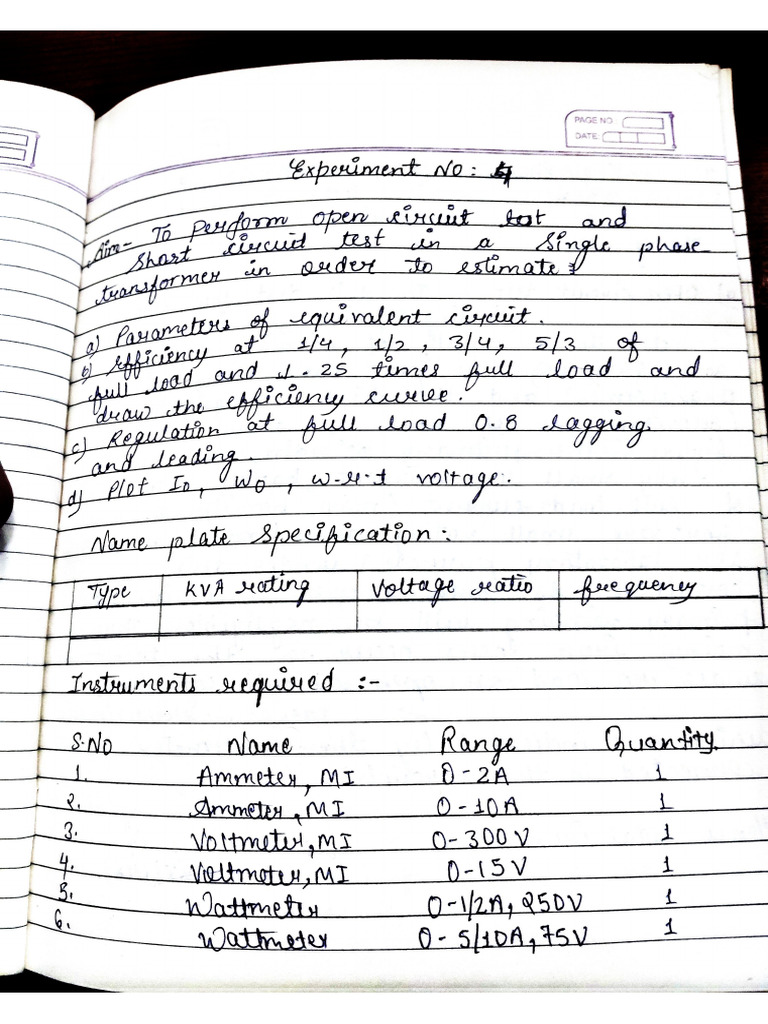 PAGE NO
DATE:
Experiment NO: 4
Aim- To perform open circuit test and
short circuit test in a single phase
transformer in order to estimate:
a) Parameters of equivalent circuit.
b) efficiency at 1/4, 1/2, 3/4, 5/3 of
full load and 1.25 times full load and
draw the efficiency curve.
c) Regulation at full load 0.8 lagging
and leading.
d) Plot I0, W0, w.r.t voltage.
Name plate specification:
Type KVA rating Voltage ratio frequency
Instruments required :-
S.NO Name Range Quantity
1. Ammeter, MI 0-2A 1
2. Ammeter, MI 0-10A 1
3. Voltmeter, MI 0-300V 1
4. Voltmeter, MI 0-15V 1
5. Wattmeter 0-1/2A, 250V 1
6. Wattmeter 0-5/10A, 75V 1